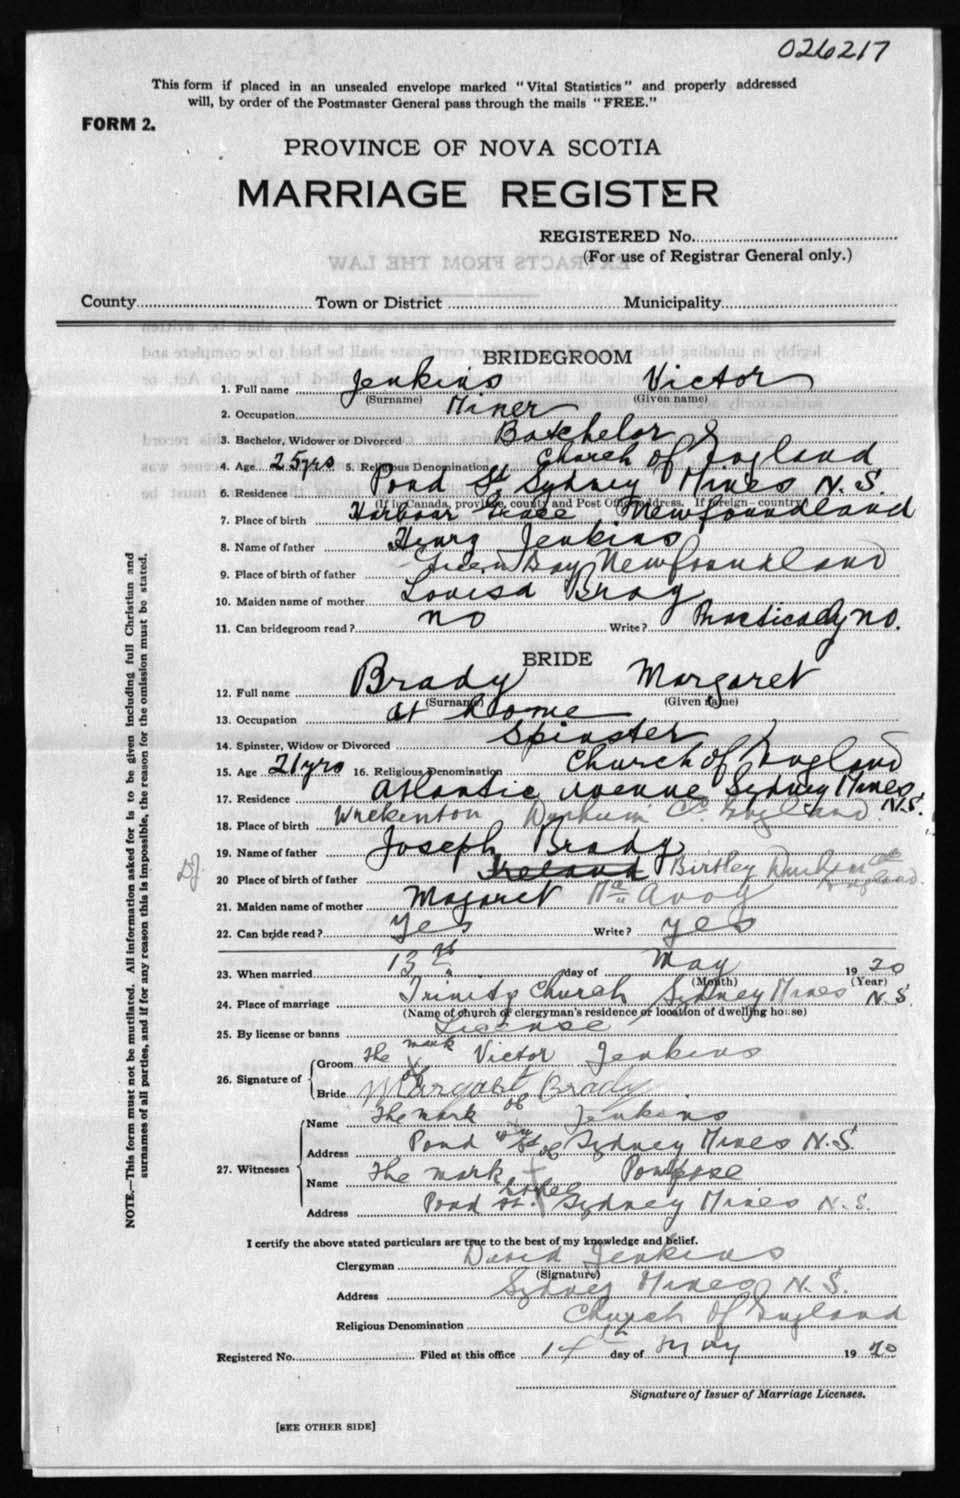 026217
This form if placed in an unsealed envelope marked "Vital Statistics" and properly addressed
will, by order of the Postmaster General pass through the mails "FREE."
FORM 2.
PROVINCE OF NOVA SCOTIA
MARRIAGE REGISTER
REGISTERED No.
(For use of Registrar General only.)
County Town or District Municipality
BRIDEGROOM
1. Full name Jenkins Victor
(Surname) (Given name)
2. Occupation Miner
3. Bachelor, Widower or Divorced Batchelor
4. Age 25 yrs 5. Religious Denomination Church of England
6. Residence Pond St Sydney Mines N.S.
(If in Canada, province, county and Post Office address. If foreign—country)
7. Place of birth Harbour Grace Newfoundland
8. Name of father Henry Jenkins
9. Place of birth of father Green Bay Newfoundland
10. Maiden name of mother Louisa Brag
11. Can bridegroom read? no Write? Practically no.
BRIDE
12. Full name Brady Margaret
(Surname) (Given name)
13. Occupation at home
14. Spinster, Widow or Divorced Spinster
15. Age 21 yrs 16. Religious Denomination Church of England
17. Residence Atlantic Avenue Sydney Mines N.S.
18. Place of birth Durham Co. England
19. Name of father Joseph Brady
20 Place of birth of father Ireland Birtley Durham Co England
21. Maiden name of mother Magaret Mc Avoy
22. Can bride read? yes Write? yes
23. When married 13th day of May 1920
(Month) (Year)
24. Place of marriage Trinity Church Sydney Mines N.S.
(Name of church or clergyman's residence or location of dwelling house)
25. By license or banns License
26. Signature of
Groom the mark X of Victor Jenkins
Bride Margaret Brady
27. Witnesses
Name The mark of Jenkins
Address Pond St Sydney Mines N.S.
Name The mark of Pompose
Address Pond St. Sydney Mines N.S.
I certify the above stated particulars are true to the best of my knowledge and belief.
Clergyman David Jenkins
(Signature)
Address Sydney Mines N.S.
Religious Denomination Church of England
Registered No. Filed at this office 14th day of May 1920
Signature of Issuer of Marriage Licenses.
[SEE OTHER SIDE]
NOTE.—This form must not be mutilated. All information asked for is to be given including full Christian and
surnames of all parties, and if for any reason this is impossible, the reason for the omission must be stated.